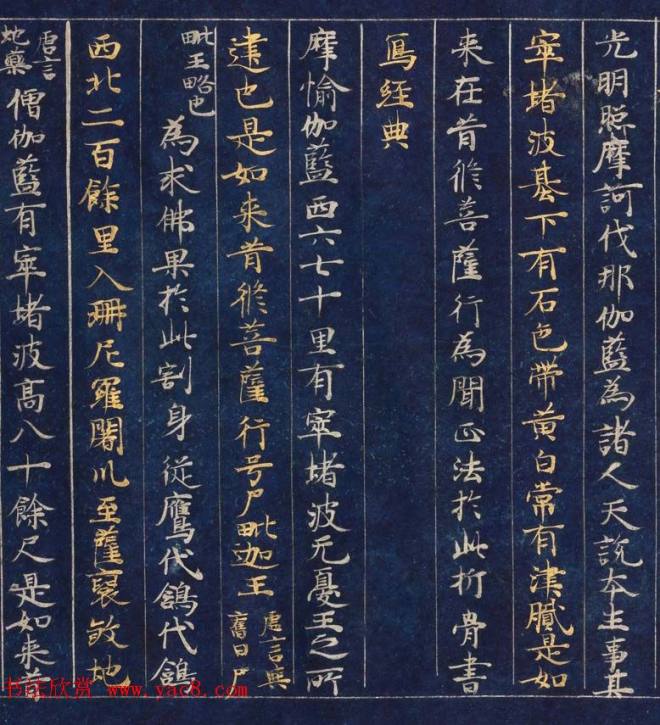 光明照摩訶伐那伽藍為諸人天說本生事其
窣堵波基下有石色帶黃白常有津膩是如
來在昔修菩薩行為聞正法於此折骨書
寫經典
摩愉伽藍西六七十里有窣堵波无憂王之所
建也是如来昔修菩薩行号尸毗迦王
唐言與
舊曰尸
毗王略也
為求佛果於此割身從鷹代鴿代鴿
西北二百餘里入珊尼羅闍川至薩裒敜地
唐言
地藥
僧伽藍有窣堵波高八十餘尺是如来
书法欣赏 www.yac8.com